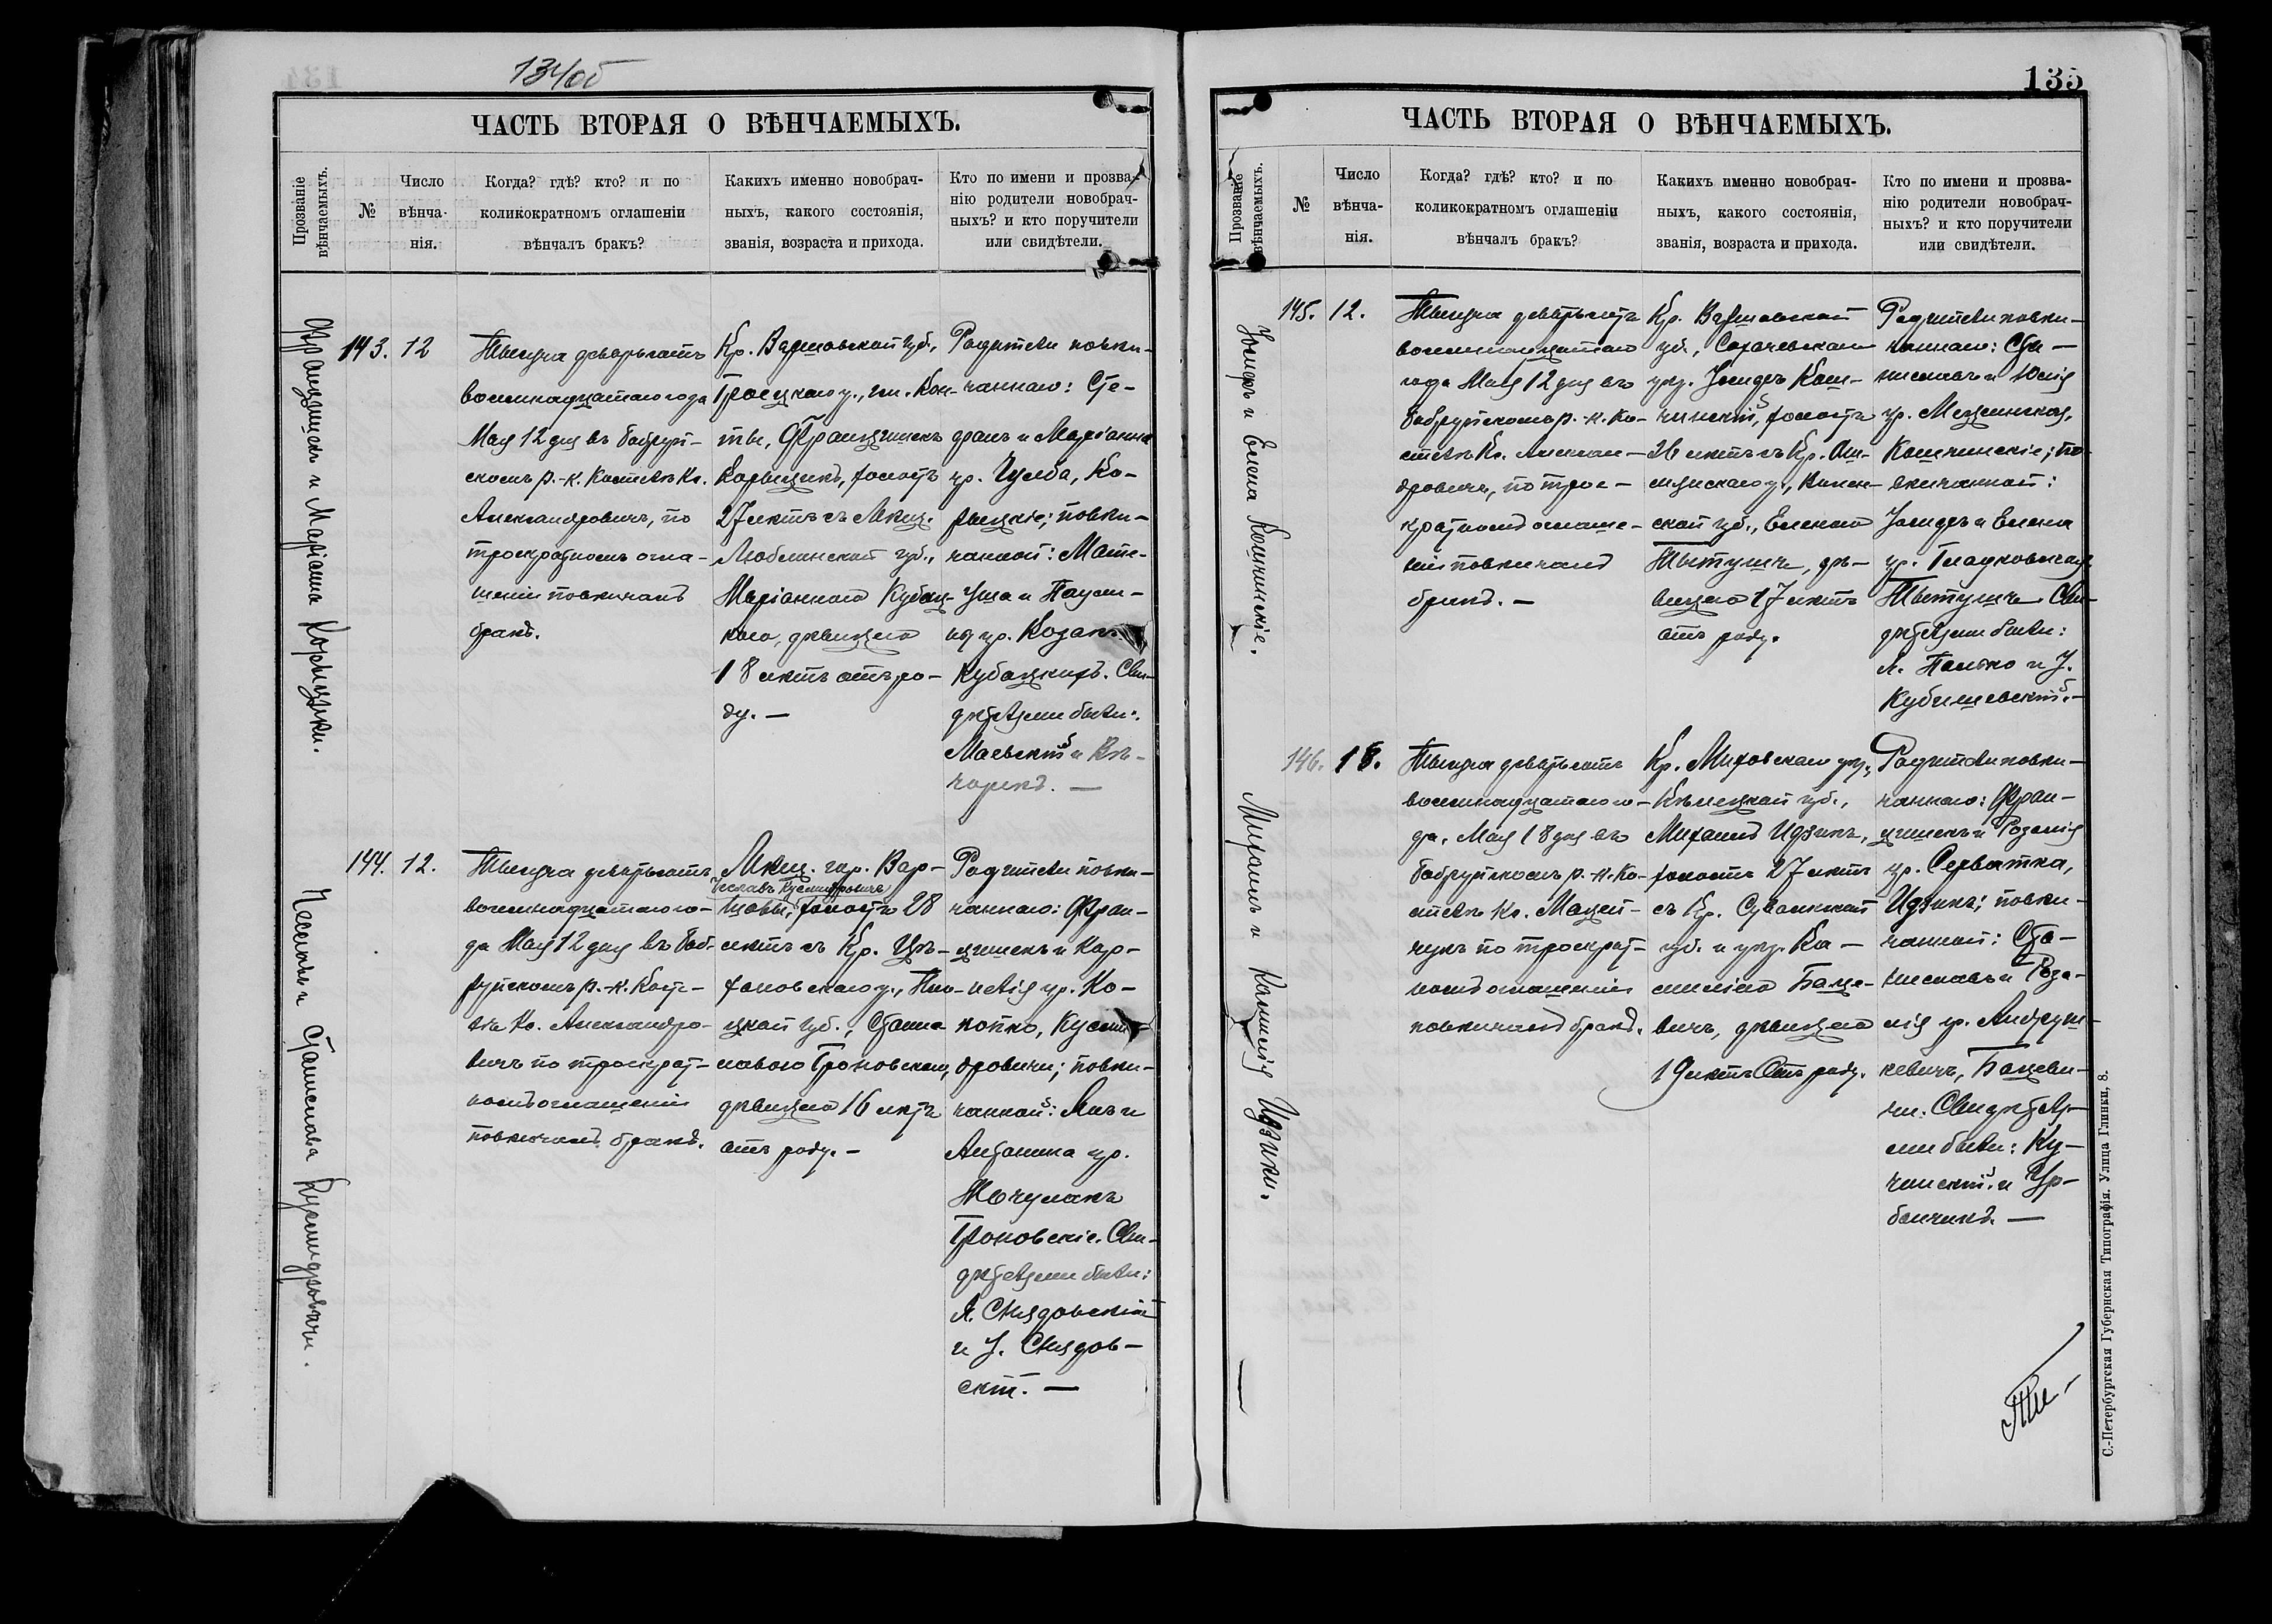 134об
ЧАСТЬ ВТОРАЯ О ВѢНЧАЕМЫХЪ.
Прозваніе вѣнчаемыхъ.
№
Число вѣнча-
нія.
Когда? гдѣ? кто? и по
коликократномъ оглашеніи
вѣнчалъ бракъ?
Какихъ именно новобрач-
ныхъ, какого состоянія,
званія, возраста и прихода.
Кто по имени и прозва-
нію родители новобрач-
ныхъ? и кто поручители
или свидѣтели.
Францишекъ и Маріанна Корыцкіи.
143. 12
Тысяча девятьсотъ
восемнадцатаго года
Мая 12 дня въ Бобруй-
скомъ р.-к. Костелѣ Кс.
Александровичъ, по
троекратномъ огла-
шеніи повѣнчалъ
бракъ.
Кр. Варшовской губ.,
Гроецкаго у., гм. Кон-
ты, Францишекъ
Корыцкій, холостъ
27 лѣтъ съ Мѣщ.
Люблинской губ.,
Маріанною Кубац-
кою, дѣвицею
18 лѣтъ отъ ро-
ду. —
Родители повѣн-
чаннаго: Сте-
фанъ и Маріанна
ур. Чулба, Ко-
рыцкіе; повѣн-
чанной: Мате-
уша и Паули-
ны ур. Козакъ
Кубацкихъ. Сви-
дѣтелями были:
Маевскій и Вѣ-
чорекъ. —
Чеславъ и Станислава Кушидровичи.
144. 12.
Тысяча девятьсотъ
восемнадцатаго го-
да Мая 12 дня въ Боб-
руйскомъ р.-к. Косте-
лѣ Кс. Александро-
вичъ по троекрат-
номъ оглашеніи
повѣнчалъ бракъ.
Мѣщ. гор. Вар-
Чеславъ Кушидровичъ
шовы, холостъ 28
лѣтъ съ Кр. Цѣ-
хановскаго у., Пло-
цкой губ., Станис-
лавою Гроновскою,
дѣвицею 16 лѣтъ
отъ роду. —
Родители повѣн-
чаннаго: Фран-
цишекъ и Кор-
нелія ур. Ко-
попко, Кушид-
ровичи; повѣн-
чанной: Янъ и
Антонина ур.
Мочулакъ
Гроновскіе. Сви-
дѣтелями были:
А. Снядовскій
и І. Снядов-
скій. —
135
ЧАСТЬ ВТОРАЯ О ВѢНЧАЕМЫХЪ.
Прозваніе вѣнчаемыхъ.
№
Число вѣнча-
нія.
Когда? гдѣ? кто? и по
коликократномъ оглашеніи
вѣнчалъ бракъ?
Какихъ именно новобрач-
ныхъ, какого состоянія,
званія, возраста и прихода.
Кто по имени и прозва-
нію родители новобрач-
ныхъ? и кто поручители
или свидѣтели.
Іосифъ и Елена Кошчинскіе.
145. 12.
Тысяча девятьсотъ
восемнадцатаго
года Мая 12 дня въ
Бобруйскомъ р.-к. Ко-
стелѣ Кс. Алексан-
дровичъ, по трое-
кратномъ оглаше-
ніи повѣнчалъ
бракъ. —
Кр. Варшовской
губ., Сохачевскаго
уѣз. Іосифъ Кош-
чинскій, холостъ
26 лѣтъ съ Кр. Ош-
мянскаго у., Вилен-
ской губ., Еленою
Тытушъ, дѣ-
вицею 17 лѣтъ
отъ роду.
Родители повѣн-
чаннаго: Ста-
ниславъ и Юлія
ур. Мещинская,
Кошчинскіе; по-
вѣнчанной:
Іосифъ и Елена
ур. Гладковская
Тытушъ. Сви-
дѣтелями были:
А. Палько и І.
Кубишевскій. —
Михаилъ и Камилія Идзики.
146. 18.
Тысяча девятьсотъ
восемнадцатаго го-
да, Мая 18 дня въ
Бобруйскомъ р.-к. Ко-
стелѣ Кс. Мацей-
чукъ по троекрат-
номъ оглашеніи
повѣнчалъ бракъ.
Кр. Мѣховскаго уѣз.,
Кѣлецкой губ.,
Михаилъ Идзикъ,
холостъ 27 лѣтъ
съ Кр. Сувалкской
губ. и уѣз. Ка-
милліею Баце-
вичъ, дѣвицею
19 лѣтъ отъ роду.
Родители повѣн-
чаннаго: Фран-
цишекъ и Розалія
ур. Серватка,
Идзикъ; повѣн-
чанной: Ста-
ниславъ и Роза-
лія ур. Андруш-
кевичъ, Бацеви-
чи. Свидѣтеля-
ми были: Ку-
чинскій и Ур-
банчикъ. —
С.-Петербургская Губернская Типографія. Улица Глинки, 8.